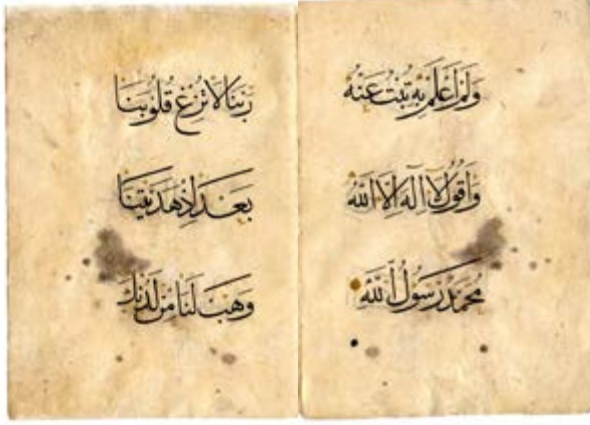 وَلَمْ اَعْلَمْ بِهِ تُبْتُ عَنْهُ
وَاَقُولُ لَا اِلٰهَ اِلَّا اللّٰهُ
مُحَمَّدٌ رَسُولُ اللّٰهِ
رَبَّنَا لَا تُزِغْ قُلُوبَنَا
بَعْدَ اِذْ هَدَيْتَنَا
وَهَبْ لَنَا مِنْ لَدُنْكَ